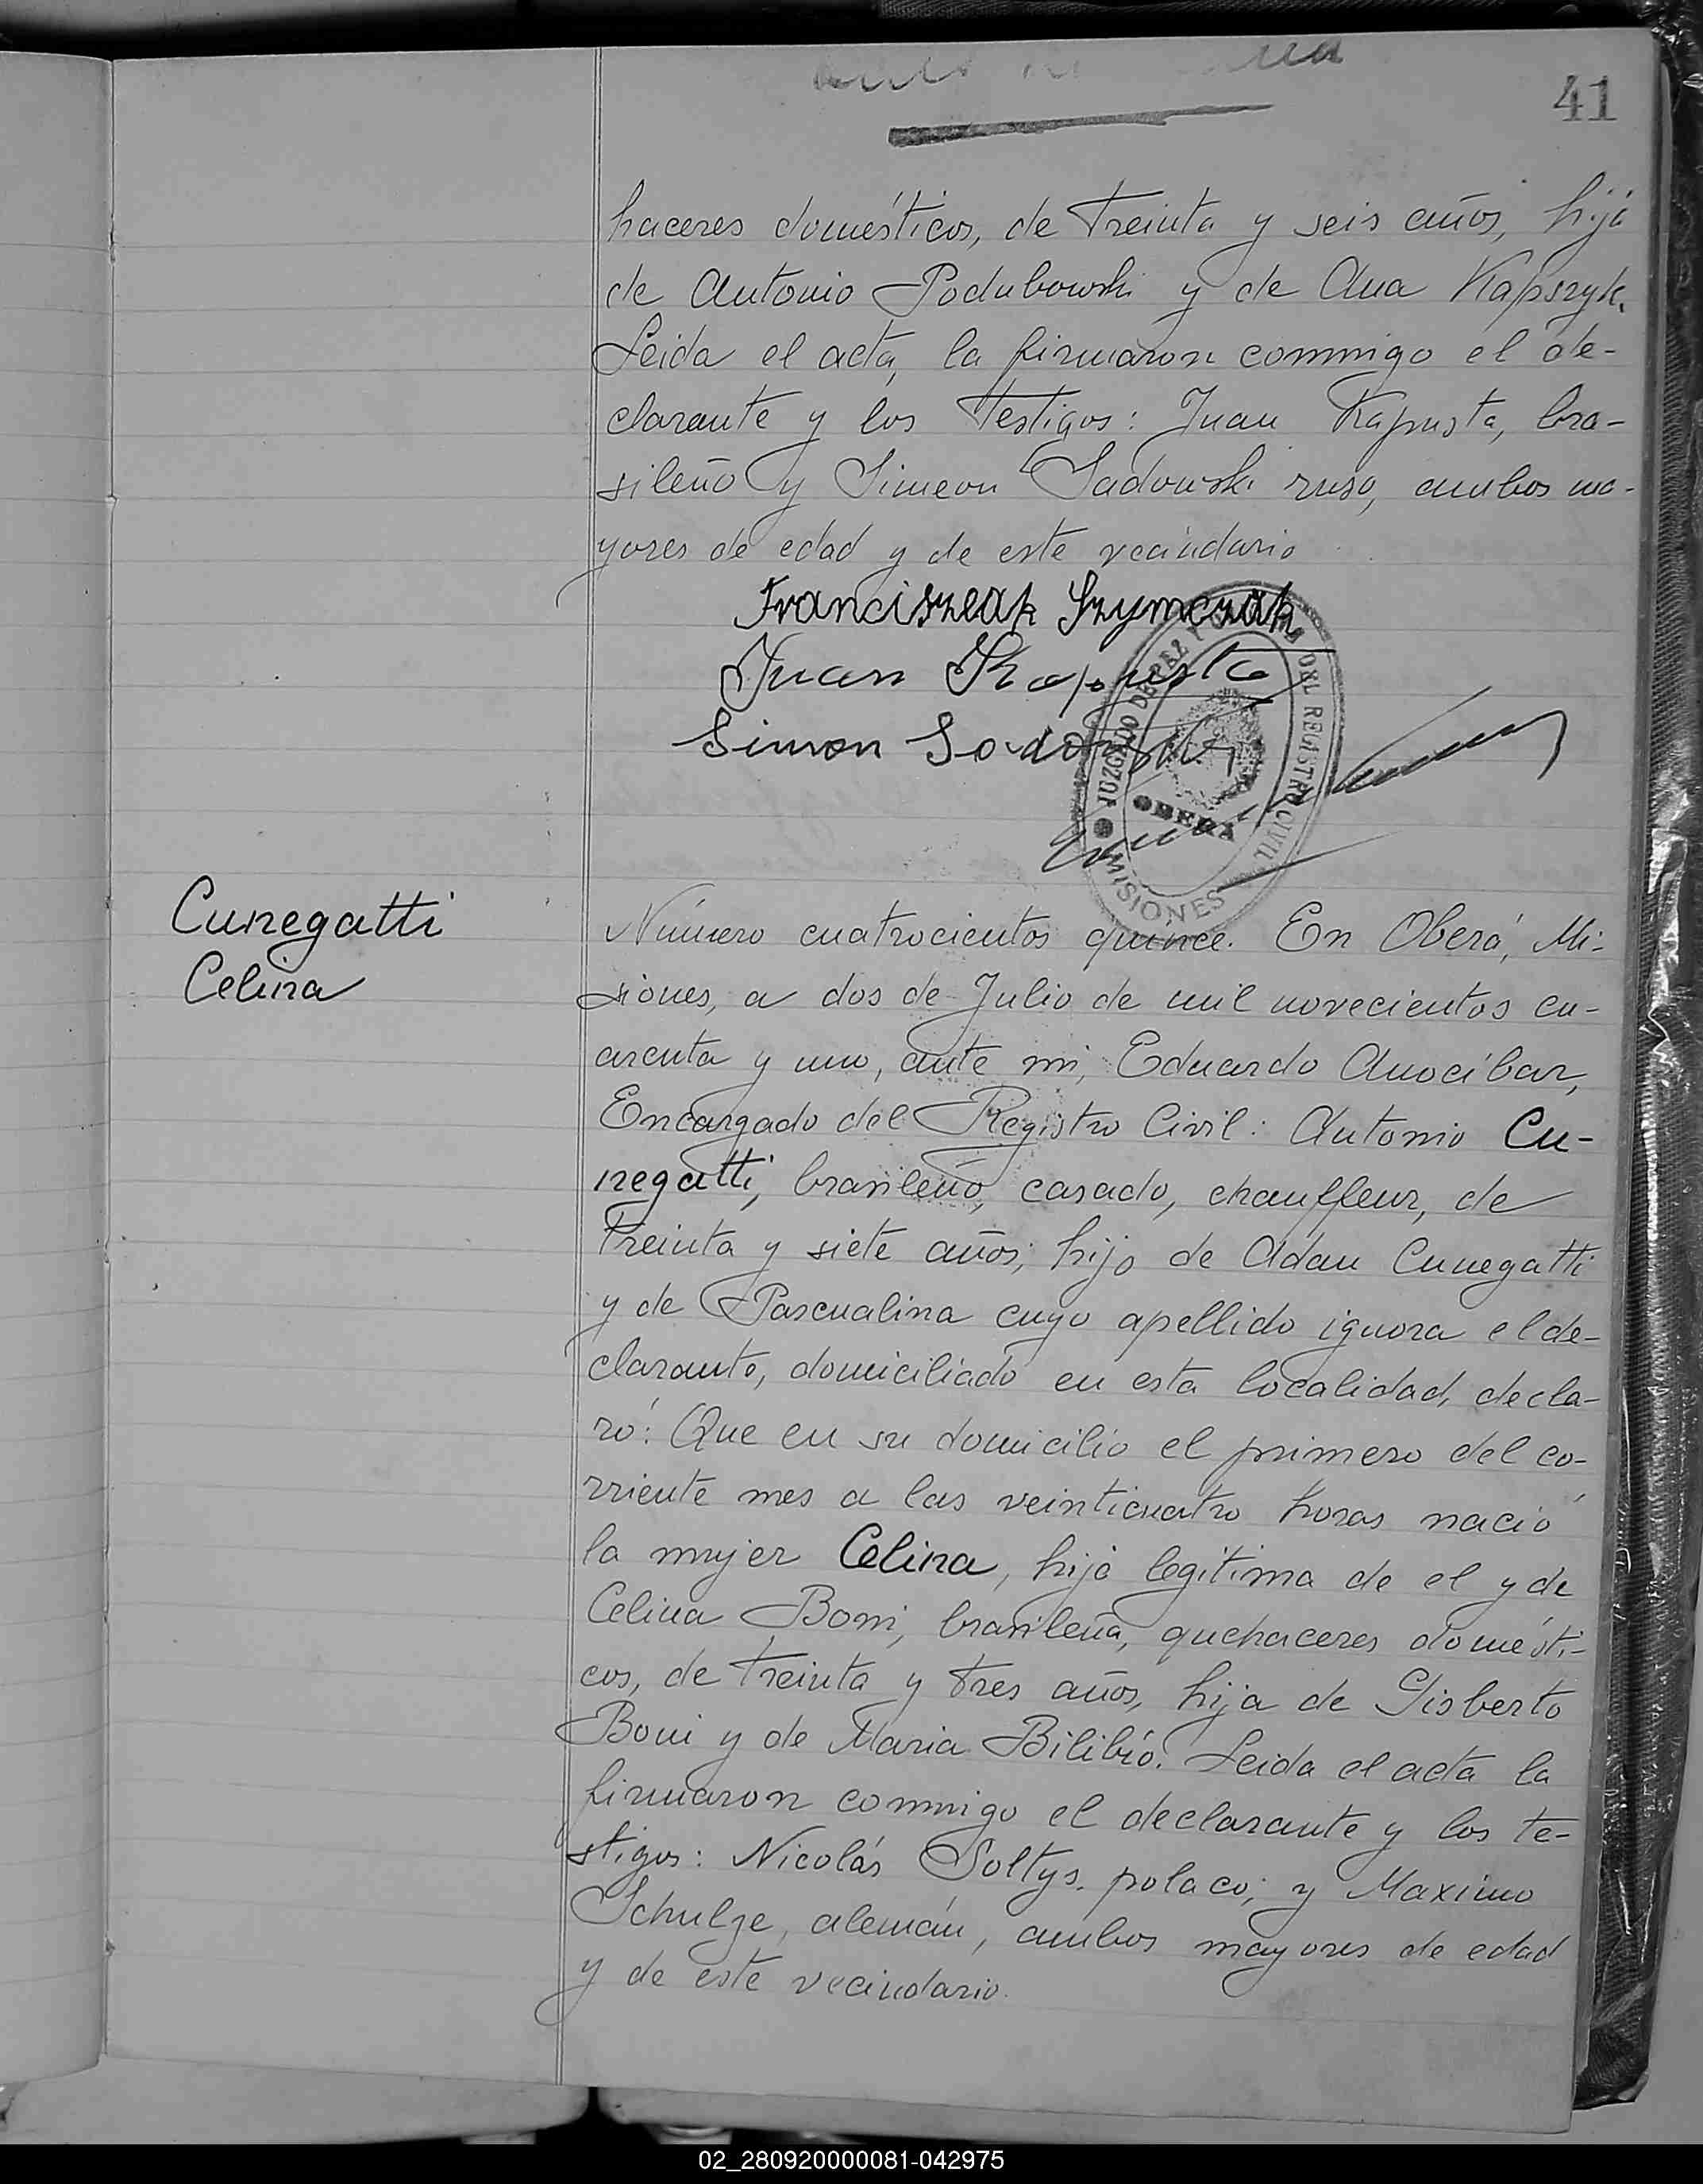 41
haceres domésticos, de treinta y seis años, hija
de Antonio Podubowski y de Ana Kapszyk.
Leida el acta, la firmaron conmigo el de-
clarante y los testigos: Juan Kapusta, bra-
sileño y Simeon Sadowski ruso, ambos ma-
yores de edad y de este vecindario
Franciszeak Szymczak
Juan Kapusta
Simon Sadowski
JUZGADO DE PAZ Y DEL REGISTRO CIVIL
OBERA
MISIONES
Cunegatti
Celina
Número cuatrocientos quince. En Oberá, Mi-
siones, a dos de Julio de mil novecientos cu-
arenta y uno, ante mi, Eduardo Anocíbar,
Encargado del Registro Civil: Antonio Cu-
negatti, brasileño, casado, chauffeur, de
treinta y siete años, hijo de Adan Cunegatti
y de Pascualina cuyo apellido ignora el de-
clarante, domiciliado en esta localidad, decla-
ró: Que en su domicilio el primero del co-
rriente mes a las veinticuatro horas nació
la mujer Celina, hija legítima de el y de
Celina Boni, brasileña, quehaceres domésti-
cos, de treinta y tres años, hija de Gisberto
Boni y de Maria Bilibio. Leida el acta la
firmaron conmigo el declarante y los te-
stigos: Nicolás Soltys, polaco; y Maximo
Schulze, alemán, ambos mayores de edad
y de este vecindario.
02_280920000081-042975